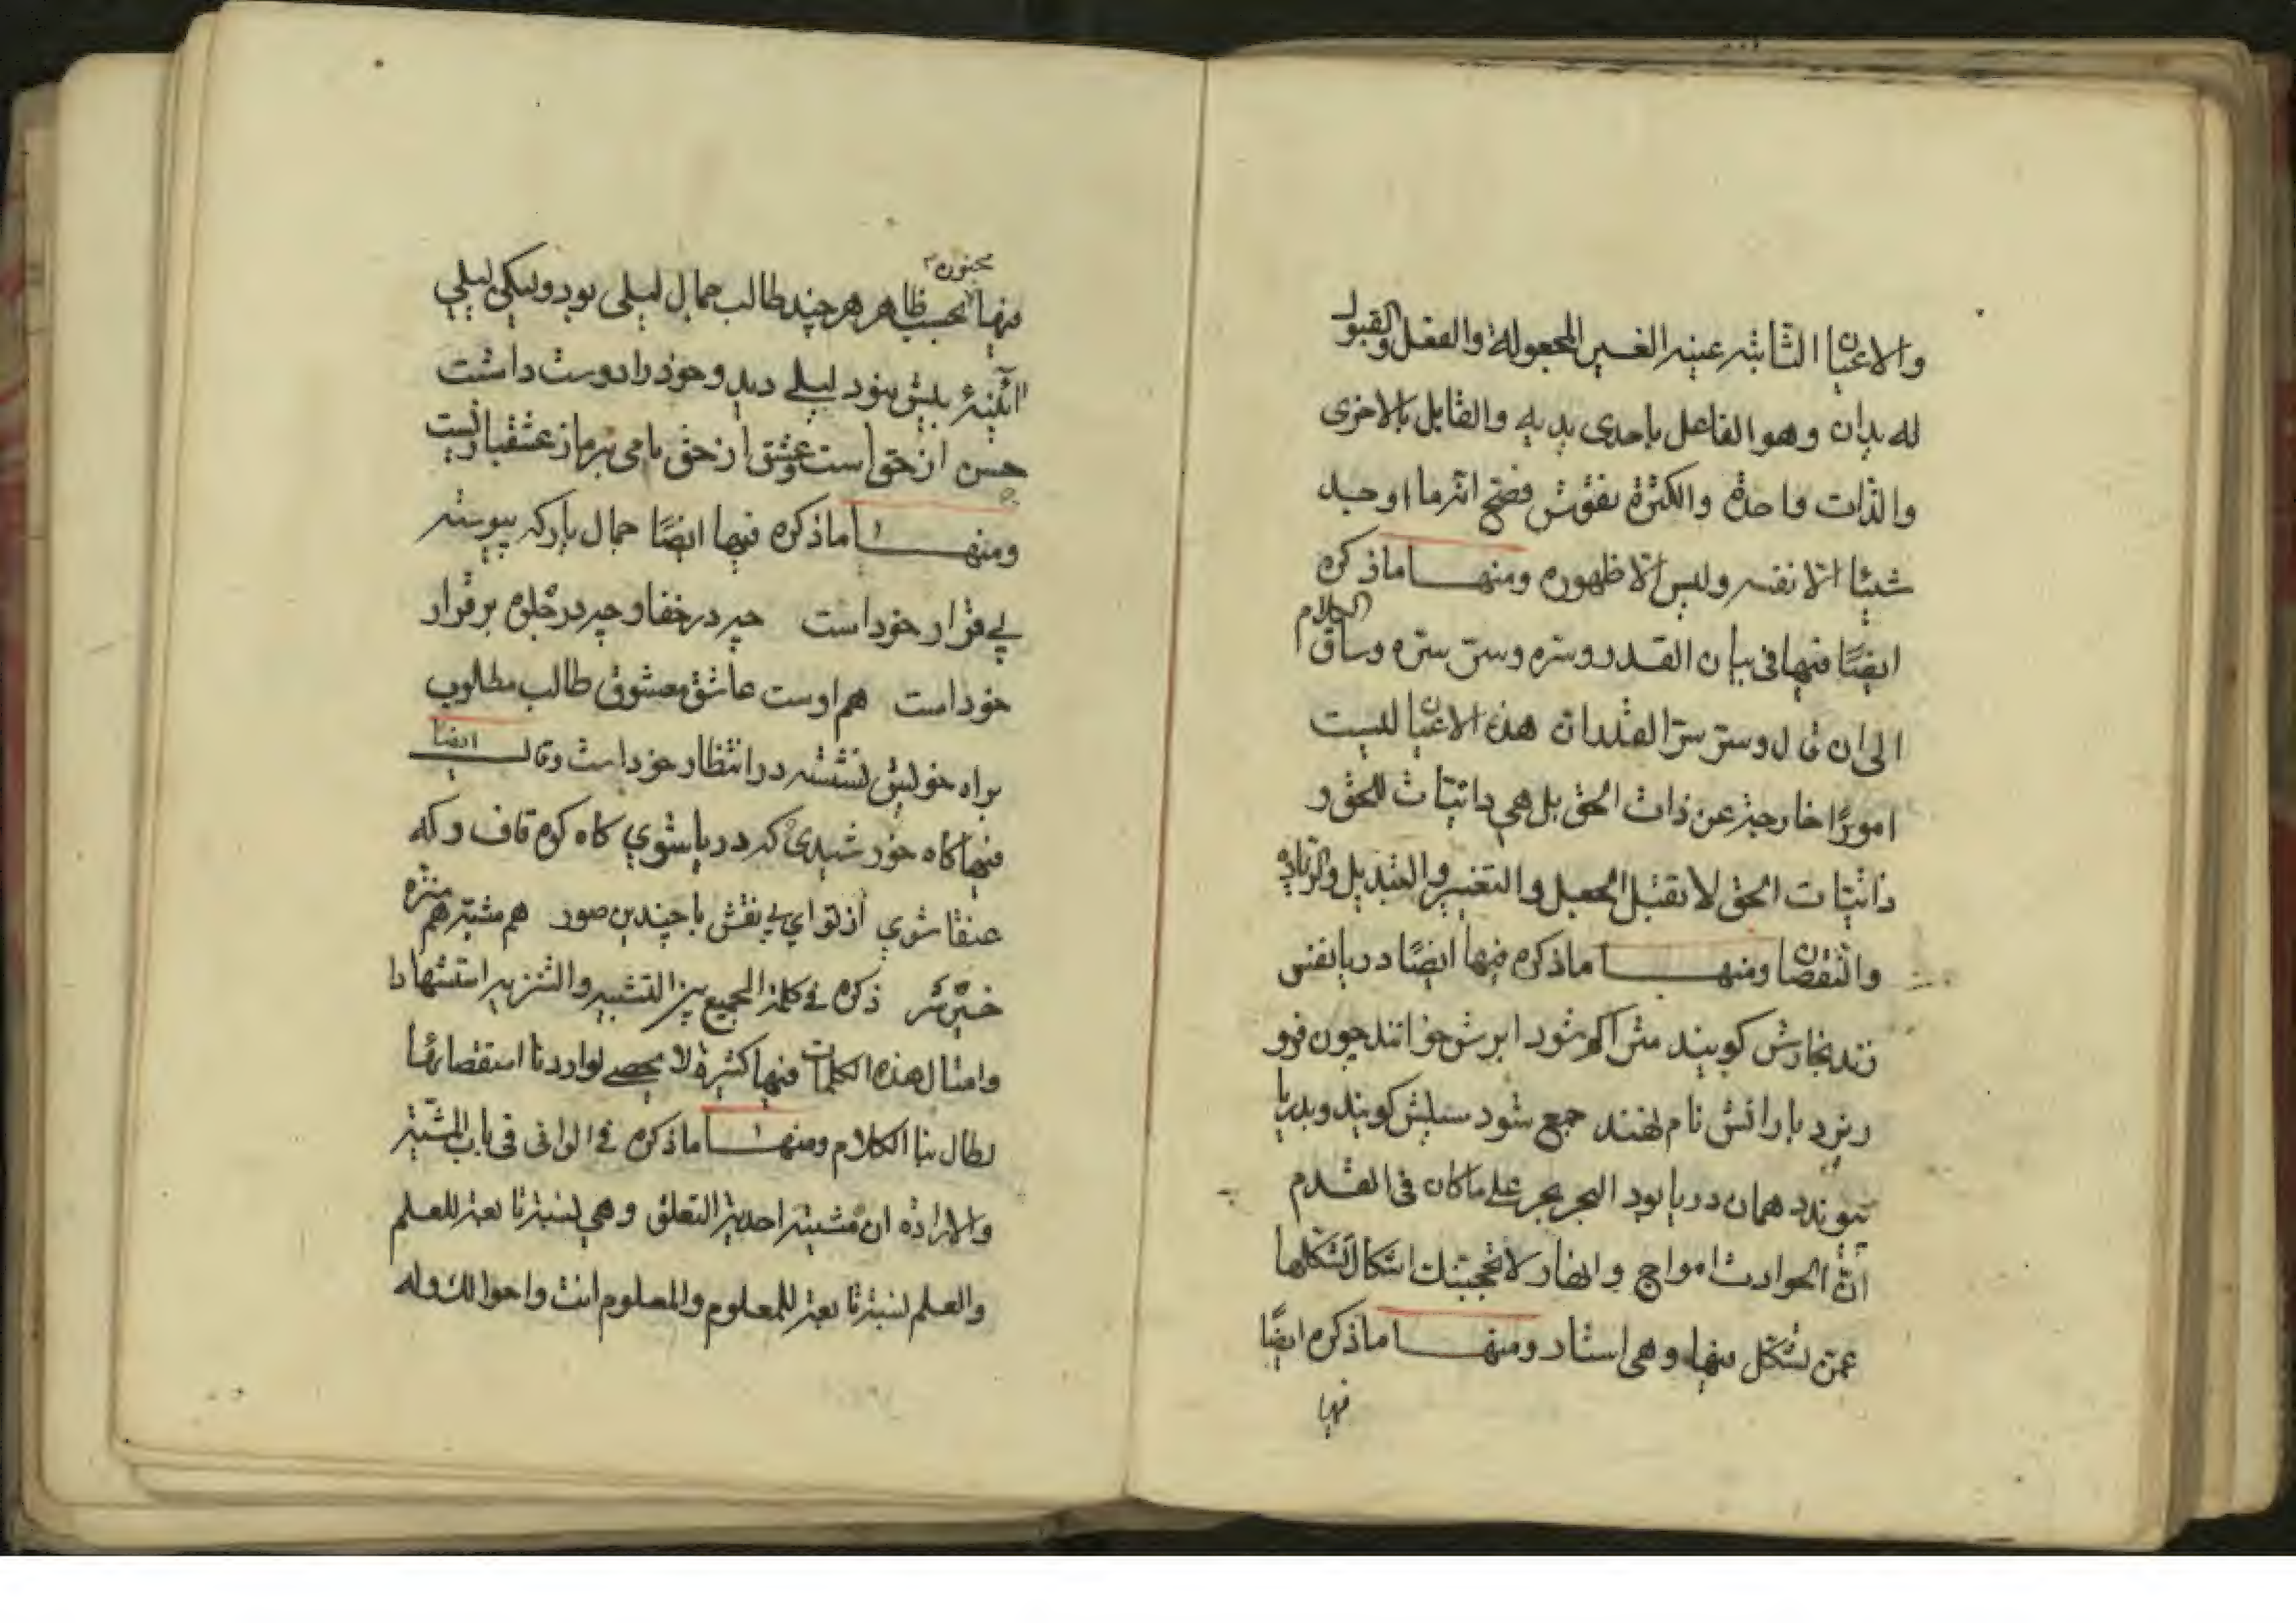 والاعيان الثابتة عينه الغير المجعولة والفعل والقبول
له يدان وهو الفاعل باحدى يديه والقابل بالاخرى
والذات واحدة والكثرة نقوش فصح انه ما اوجد
شيئا الا نفسه وليس الا ظهوره ومنها ما ذكره
ايضا فيها في بيان القدر وسره وسر سره وساق الكلام
الى ان قال وسر سر القدر ان هذه الاعيان ليست
امورا خارجة عن ذات الحق بل هي ذاتيات للحق و
ذاتيات الحق لا تقبل الجعل والتغيير والتبديل والزيادة
والنقصان ومنها ما ذكره فيها ايضا دريا نفسى
زند بخارش كويند متراكم شود ابرش خوانند چون فرو
ريزد بارانش نام نهند جمع شود سيلش كويند و بدريا
پيوندد همان دريا بود البحر بحر على ما كان في القدم
ان الحوادث امواج وانهار لا تحجبنك اشكال تشكلها
عمن تشكل فيها وهي استار ومنها ما ذكره ايضا
فيها
مجنون
فيها بحسب ظاهر هر چند طالب جمال ليلى بود وليكن ليلي
آئينۀ بيش نبود ليلے ديد وخود را دوست داشت
حسن از حق است وعشق از حق نامى بر ما ز عشقبازيست
ومنها ما ذكره فيها ايضا جمال يار كه پيوسته
بے قرار خود است چه در خفا و چه در جلوه برقرار
خود است هم اوست عاشق ومعشوق طالب مطلوب
براه خويش نشسته در انتظار خود است وقال ايضا
فيها كاه خورشيدى كه دريا شوي كاه كوه قاف و كه
عنقا شوي از تو اي بے نقش با چندين صور هم مشبه هم منزه
خيره سر ذكره فے كلمة الجمع بين التشبيه والتنزيه استشهادا
وامثال هذه الكلمات فيها كثيرة لا يحصے لو اردنا استقصائها
لطال بنا الكلام ومنها ما ذكره في الوافى فى باب المشية
والارادة ان مشيته احدية التعلق وهي نسبة تابعة للعلم
والعلم نسبة تابعة للمعلوم والمعلوم انت واحوالك وله